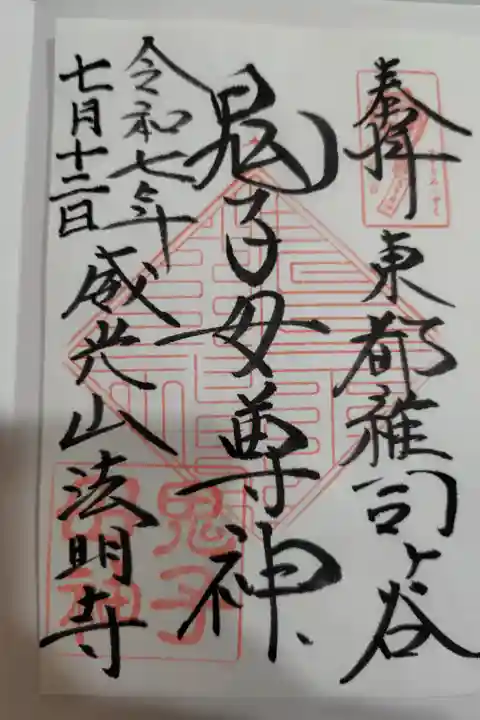 奉拝
東都雑司ヶ谷
鬼子母尊神
令和七年
七月十二日
威光山法明寺
鬼子
母神